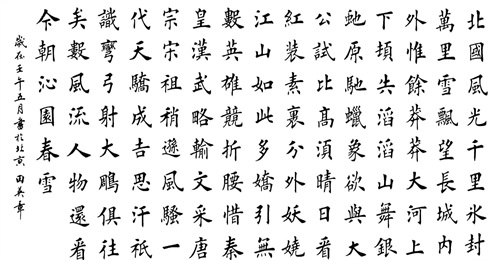 北國風光千里冰封
萬里雪飄望長城內
外惟餘莽莽大河上
下頓失滔滔山舞銀
虵原馳蠟象欲與大
公試比高湏晴日看
紅裝素裹分外妖嬈
江山如此多嬌引無
數英雄競折腰惜秦
皇漢武略輸文采唐
宗宋祖稍遜風騷一
代天驕成吉思汗祇
識彎弓射大鵰俱往
矣數風流人物還看
今朝沁園春雪
歲在壬午五月書於北京 田英章